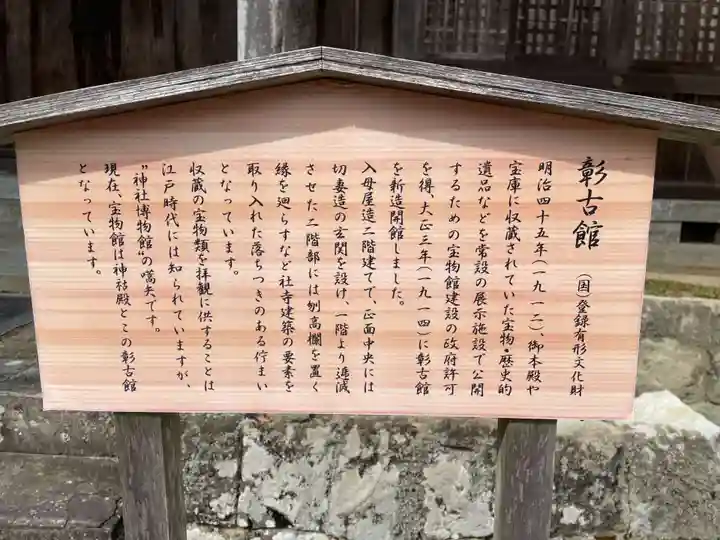 彰古館
（国 登録有形文化財
明治四十五年（一九一二）、御本殿や
宝庫に収蔵されていた宝物・歴史的
遺品などを常設の展示施設で公開
するための宝物館建設の政府許可
を得、大正三年（一九一四）に彰古館
を新造開館しました。
入母屋造二階建てで、正面中央には
切妻造の玄関を設け、一階より逓減
させた二階部には刎高欄を置く
縁を廻らすなど社寺建築の要素を
取り入れた落ちつきのある佇まい
となっています。
収蔵の宝物類を拝観に供することは
江戸時代には知られていますが、
"神社博物館"の嚆矢です。
現在、宝物館は神祜殿とこの彰古館
となっています。